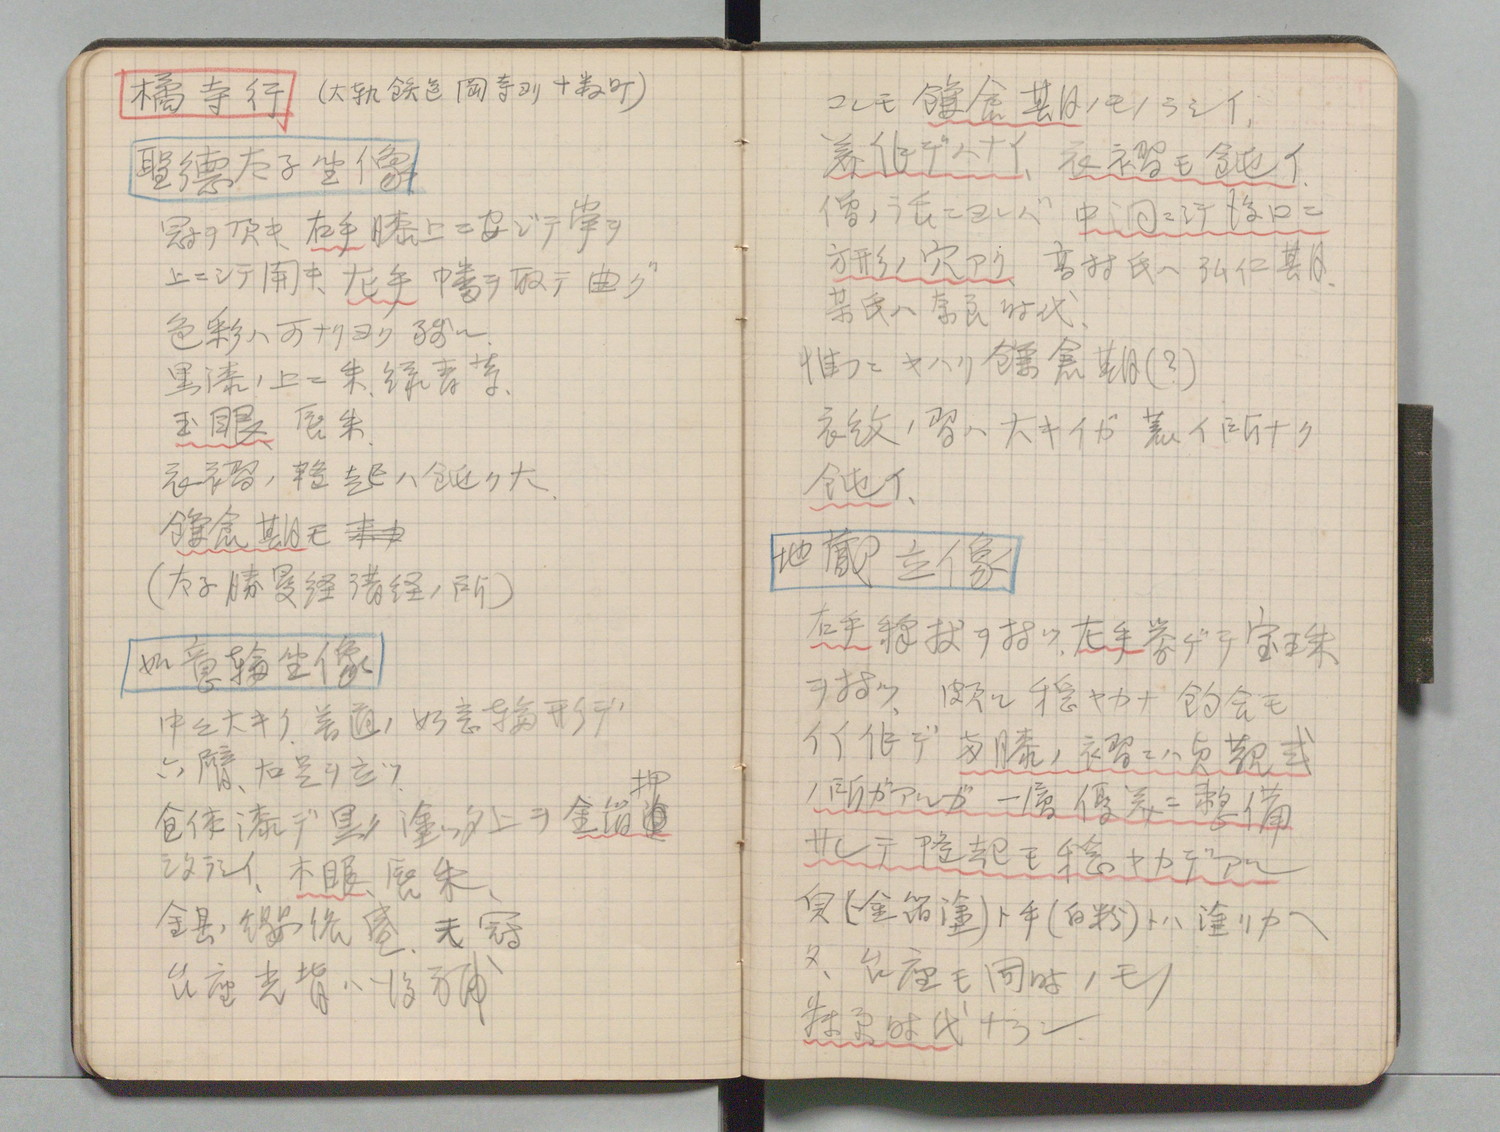 橘寺行 (大軌鉄道岡寺ヨリ十数町)
聖徳太子坐像
冠ヲ頂キ、右手膝上ニ安ジテ掌ヲ
上ニシテ開キ、左手幡ヲ取テ曲グ
色彩ハ可ナリヨク残ル、
黒漆ノ上ニ朱、緑青等、
玉眼 唇朱、
衣褶ノ隆起ハ鈍ク大、
鎌倉期モ
(太子勝曼経講経ノ所)
如意輪坐像
中々大キク、普通ノ如意輪形デ
六臂、右足ヲ立ツ
全体漆デ黒ク塗ッタ上ヲ金箔押
シタラシイ、木眼、唇朱、
台座光背ハ後補
コレモ鎌倉期ノモノラシイ、
美作デハナイ、衣褶モ鈍イ、
僧ノ言ニヨレバ中洞ニシテ後ロニ
方形ノ穴アリ、高村氏ハ弘仁期、
某氏ハ奈良時代、
惟フニヤハリ鎌倉期(?)
衣紋ノ褶ハ大キイガ 荒イ所ナク
鈍イ、
地蔵立像
右手錫杖ヲ持ツ、左手掌ゲテ宝珠
ヲ持ツ、頗ル穏ヤカナ釣合モ
イイ作デ両膝ノ衣褶ニハ貞観式
ノ所ガアルガ一層優美ニ整備
サレテ隆起モ穏ヤカデアル
(金箔塗)ト手(白粉)トハ塗リカヘ
タ、台座モ同時ノモノ
藤原時代ナラン